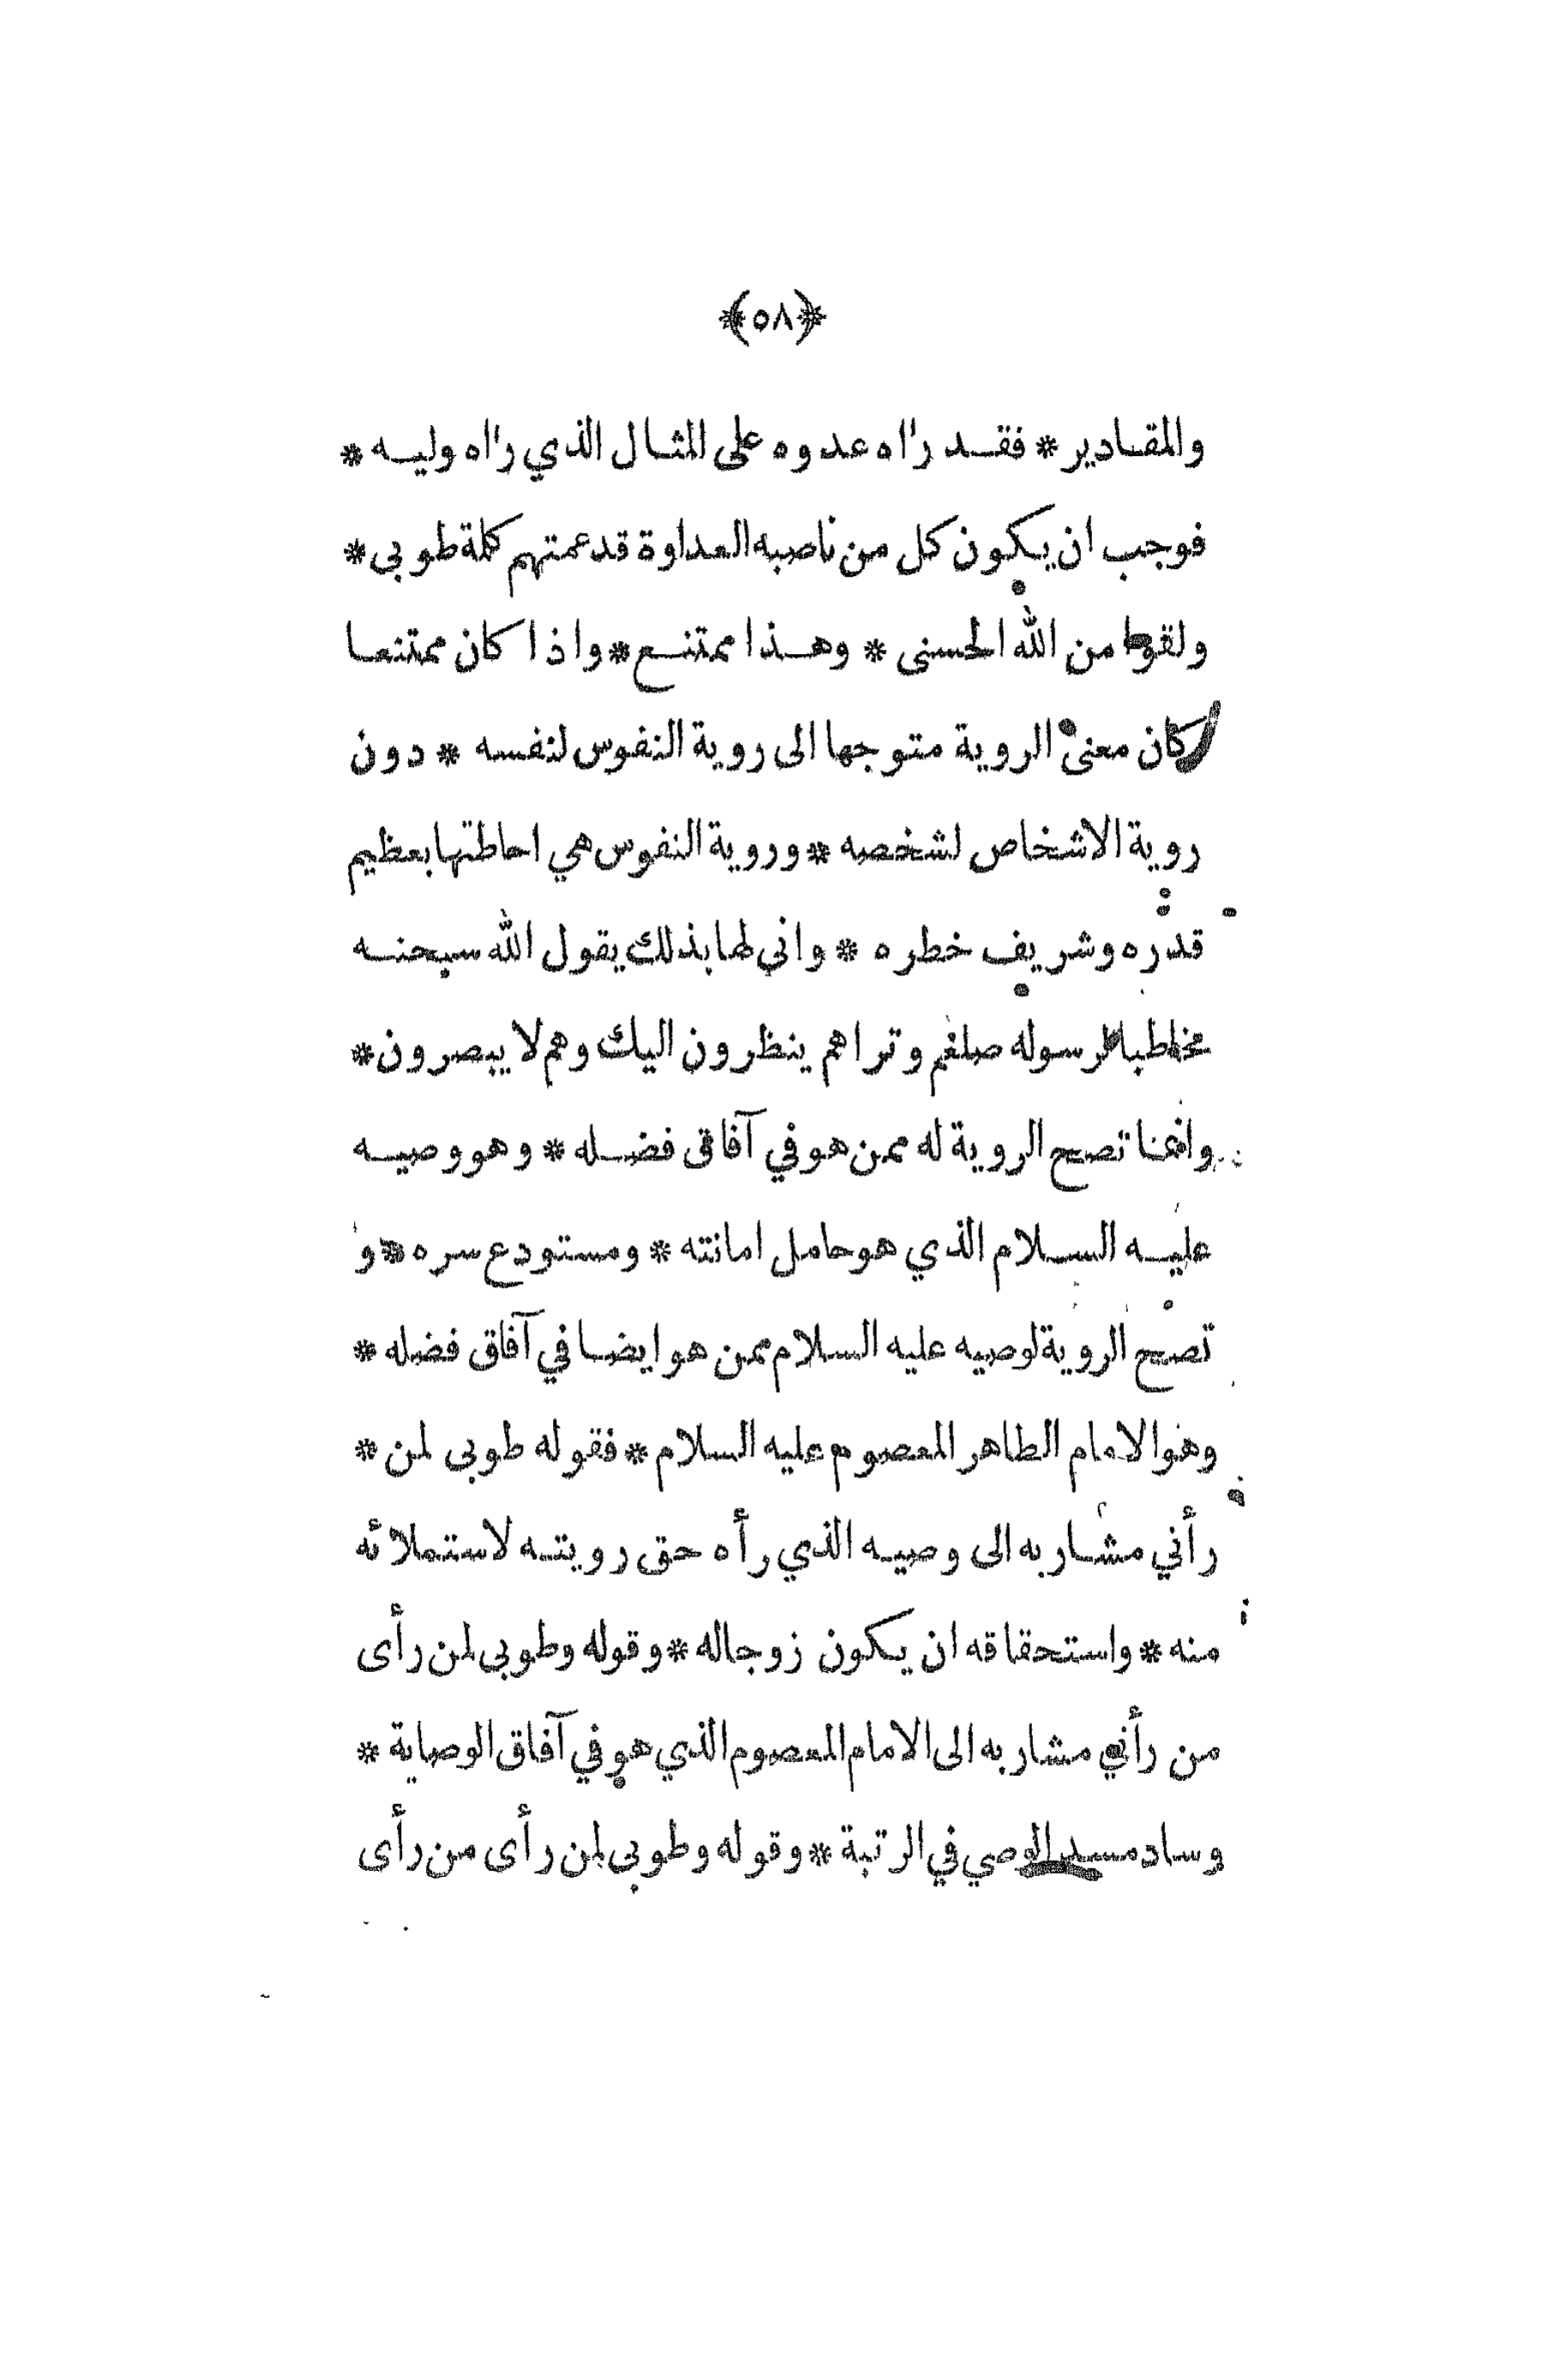 ﴿٥٨﴾
والمقادير * فقد رااه عدوه على المثال الذي رااه وليه *
فوجب ان يكون كل من ناصبه العداوة قد عمتهم كلمة طوبى *
ولقوا من الله الحسنى * وهذا ممتنع * واذا كان ممتنعا
كان معنى الروية متوجها الى روية النفوس لنفسه * دون
روية الاشخاص لشخصه * وروية النفوس هي احاطتها بعظيم
قدره وشريف خطره * واني لها بذلك يقول الله سبحنه
مخاطبا لرسوله صلعم وتراهم ينظرون اليك وهم لا يبصرون *
وانما تصح الروية له ممن هو في آفاق فضله * وهو وصيه
عليه السلام الذي هو حامل امانته * ومستودع سره * و
تصح الروية لوصيه عليه السلام ممن هو ايضا في آفاق فضله *
وهو الامام الطاهر المعصوم عليه السلام * فقوله طوبى لمن *
رأني مشار به الى وصيه الذي رأه حق رويته لاستملائه
منه * واستحقاقه ان يكون زوجاله * وقوله وطوبى لمن رأى
من رأني مشار به الى الامام المعصوم الذي هو في آفاق الوصاية *
وساد مسد الوصي في الرتبة * وقوله وطوبى لمن رأى من رأى